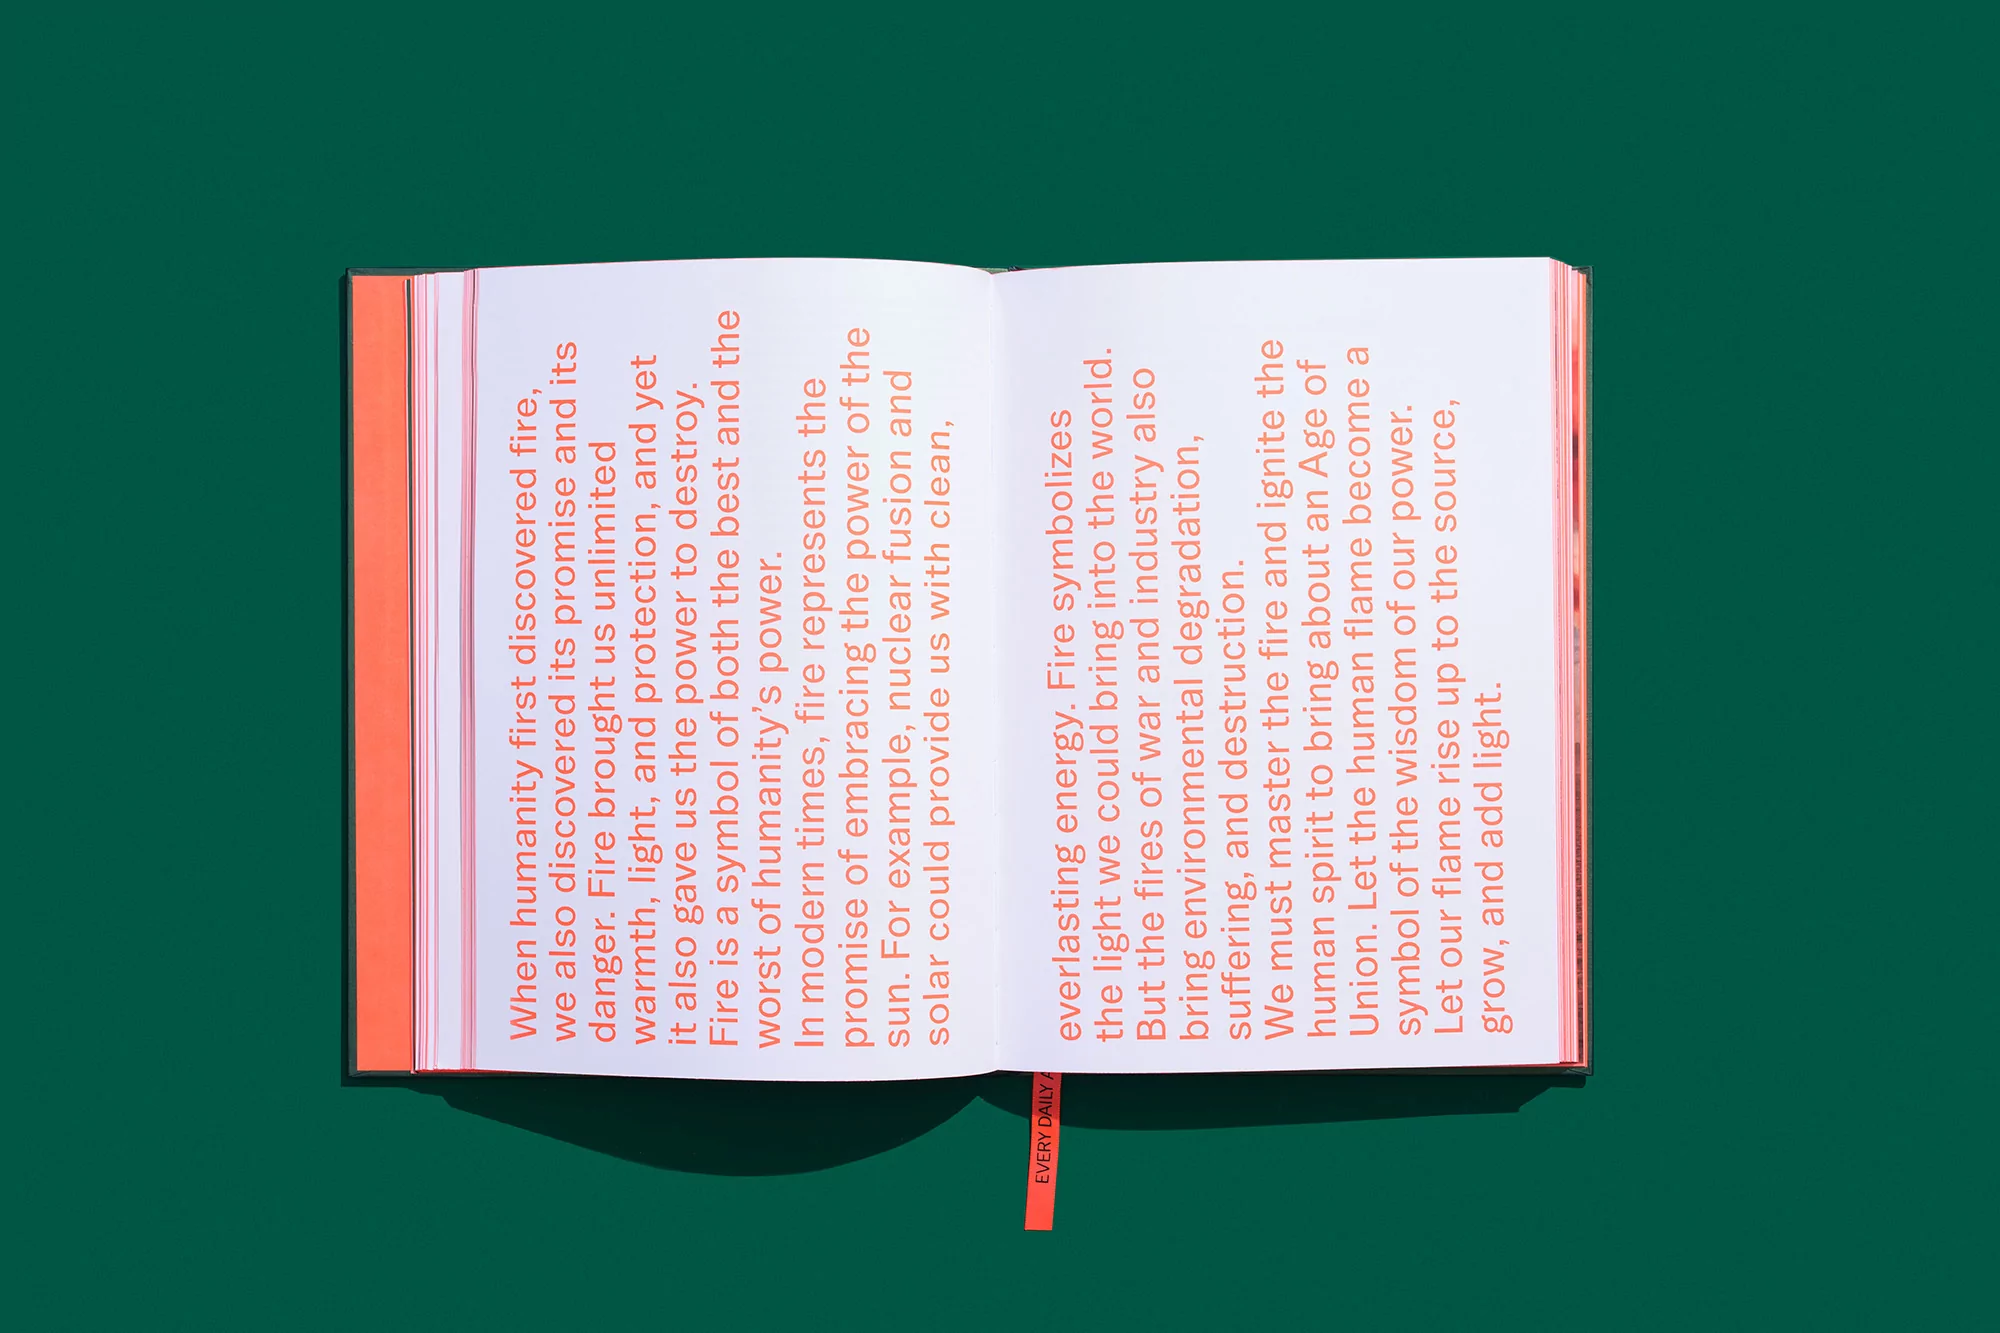 When humanity first discovered fire,
we also discovered its promise and its
danger. Fire brought us unlimited
warmth, light, and protection, and yet
it also gave us the power to destroy.
Fire is a symbol of both the best and the
worst of humanity’s power.
In modern times, fire represents the
promise of embracing the power of the
sun. For example, nuclear fusion and
solar could provide us with clean,
everlasting energy. Fire symbolizes
the light we could bring into the world.
But the fires of war and industry also
bring environmental degradation,
suffering, and destruction.
We must master the fire and ignite the
human spirit to bring about an Age of
Union. Let the human flame become a
symbol of the wisdom of our power.
Let our flame rise up to the source,
grow, and add light.
EVERY DAILY A